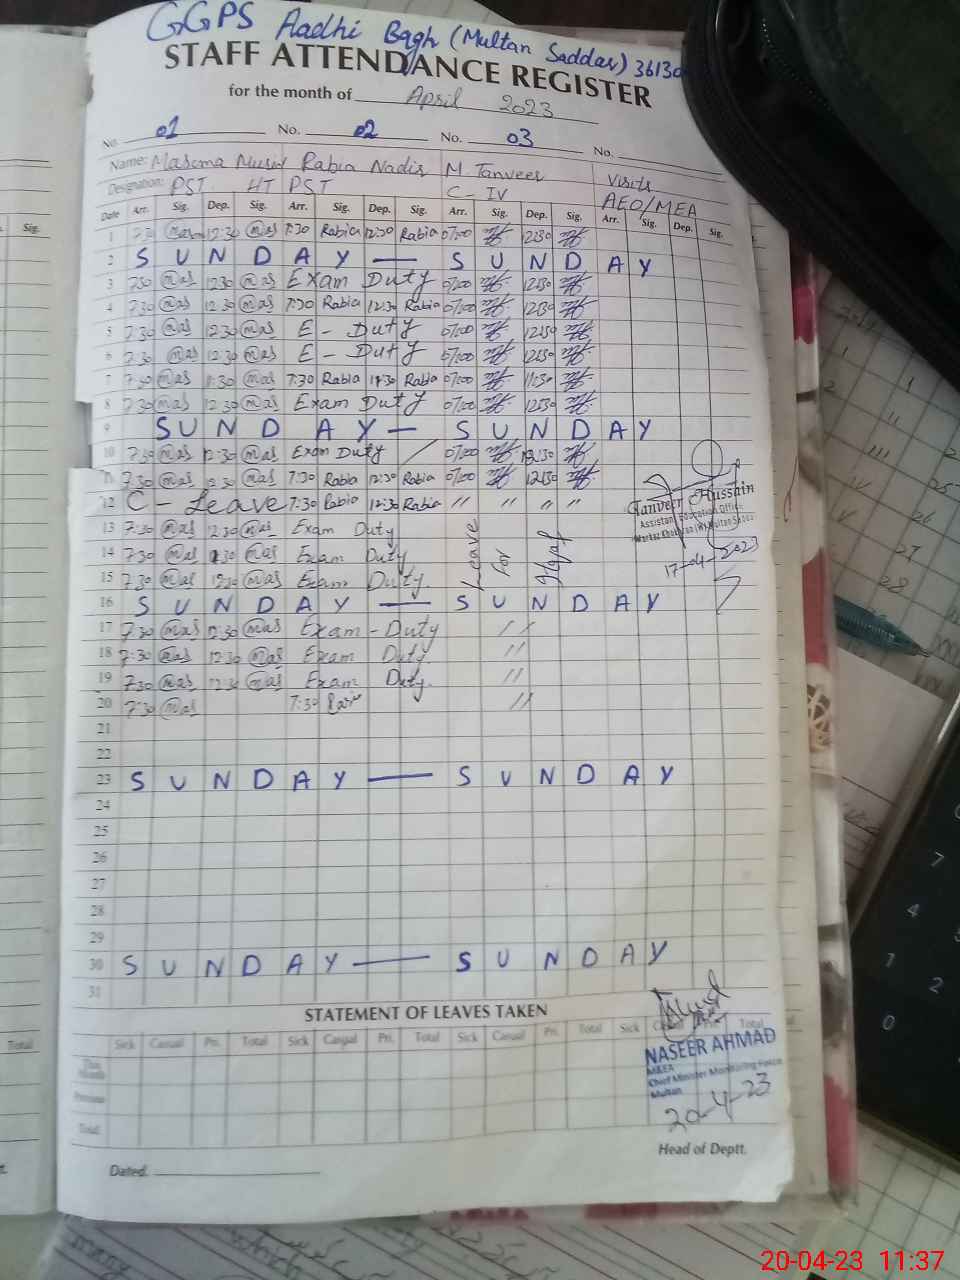 GGPS Aadhi Bagh (Multan Saddar) 36130
STAFF ATTENDANCE REGISTER
for the month of April 2023
No. 01 No. 02 No. 03 No.
Name: Rabia M. Tanveer Visits
Designation: PST HT PST C-IV AEO/MEA
Date Arr. Sig. Dep. Sig. Arr. Sig. Dep. Sig. Arr. Sig. Dep. Sig. Arr. Sig. Dep. Sig.
1 7:30 12:30 mas 7:30 Rabia 12:30 Rabia 07:00 12:30
2 S U N D A Y — S U N D A Y
3 7:30 mas 12:30 mas Exam Duty 07:00 12:30
4 7:30 mas 12:30 mas 7:30 Rabia 12:30 Rabia 07:00 12:30
5 7:30 mas 12:30 mas E - Duty 07:00 12:30
6 7:30 mas 12:30 mas E - Duty 07:00 12:30
7 7:30 mas 11:30 mas 7:30 Rabia 11:30 Rabia 07:00 11:30
8 7:30 mas 12:30 mas Exam Duty 07:00 12:30
9 S U N D A Y — S U N D A Y
10 7:30 mas 12:30 mas Exam Duty 07:00 12:30
11 7:30 mas 12:30 mas 7:30 Rabia 12:30 Rabia 07:00 12:30
12 C - Leave 7:30 Rabia 12:30 Rabia // // // //
Tanveer Hussain
Assistant Education Officer
17-04-2023
13 7:30 mas 12:30 mas Exam Duty Leave for
14 7:30 mas 12:30 mas Exam Duty
15 7:30 mas 12:30 mas Exam Duty
16 S U N D A Y — S U N D A Y
17 7:30 mas 12:30 mas Exam - Duty //
18 7:30 mas 12:30 mas Exam Duty //
19 7:30 mas 12:30 mas Exam Duty. //
20 7:30 mas 7:30 //
21
22
23 S U N D A Y — S U N D A Y
24
25
26
27
28
29
30 S U N D A Y — S U N D A Y
31
STATEMENT OF LEAVES TAKEN
Sick Casual Pri. Total Sick Casual Pri. Total Sick Casual Pri. Total Sick Casual Pri. Total
This Month
Previous
Total
NASEER AHMAD
M&EA
Chief Minister Monitoring Force
Multan
20-4-23
Head of Deptt.
Dated.
20-04-23 11:37